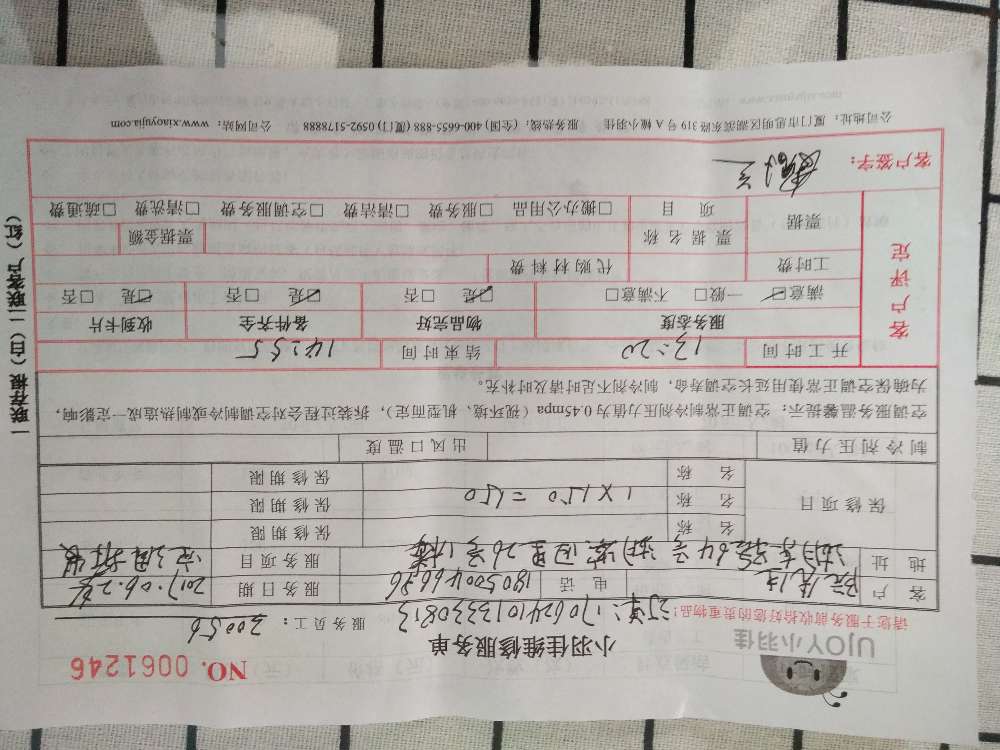 UJOY小羽佳
小羽佳维修服务单
NO. 0061246
订单:17062410133330813
请您于服务前收拾好您的贵重物品!
服务员工: 30056
客户 电话 18050046686 服务日期 2017.06.28
地址 服务项目 空调拆装
保修项目 名称 保修期限
名称 1×150=150 保修期限
名称 保修期限
制冷剂压力值 出风口温度
空调服务温馨提示:空调正常制冷剂压力值为0.45mpa(视环境、机型而定),拆装过程会对空调制冷或制热造成一定影响,
为确保空调正常使用延长空调寿命,制冷剂不足时请及时补充。
客户评定
开工时间 13:20 结束时间 14:55
服务态度 物品完好 备件齐全 收到卡片
满意☑ 一般□ 不满意□ ☑是 □否 ☑是 □否 ☑是 □否
工时费 代购材料费
票据 票据名称 票据金额
项目 □搬办公用品 □服务费 □清洁费 □空调服务费 □清洗费 □疏通费
客户签字:
公司地址:厦门市思明区湖滨东路319号A幢小羽佳 服务热线:(全国)400-6655-888(厦门)0592-5178888 公司网站:www.xiaoyujia.com
一联存根(白)二联客户(红)